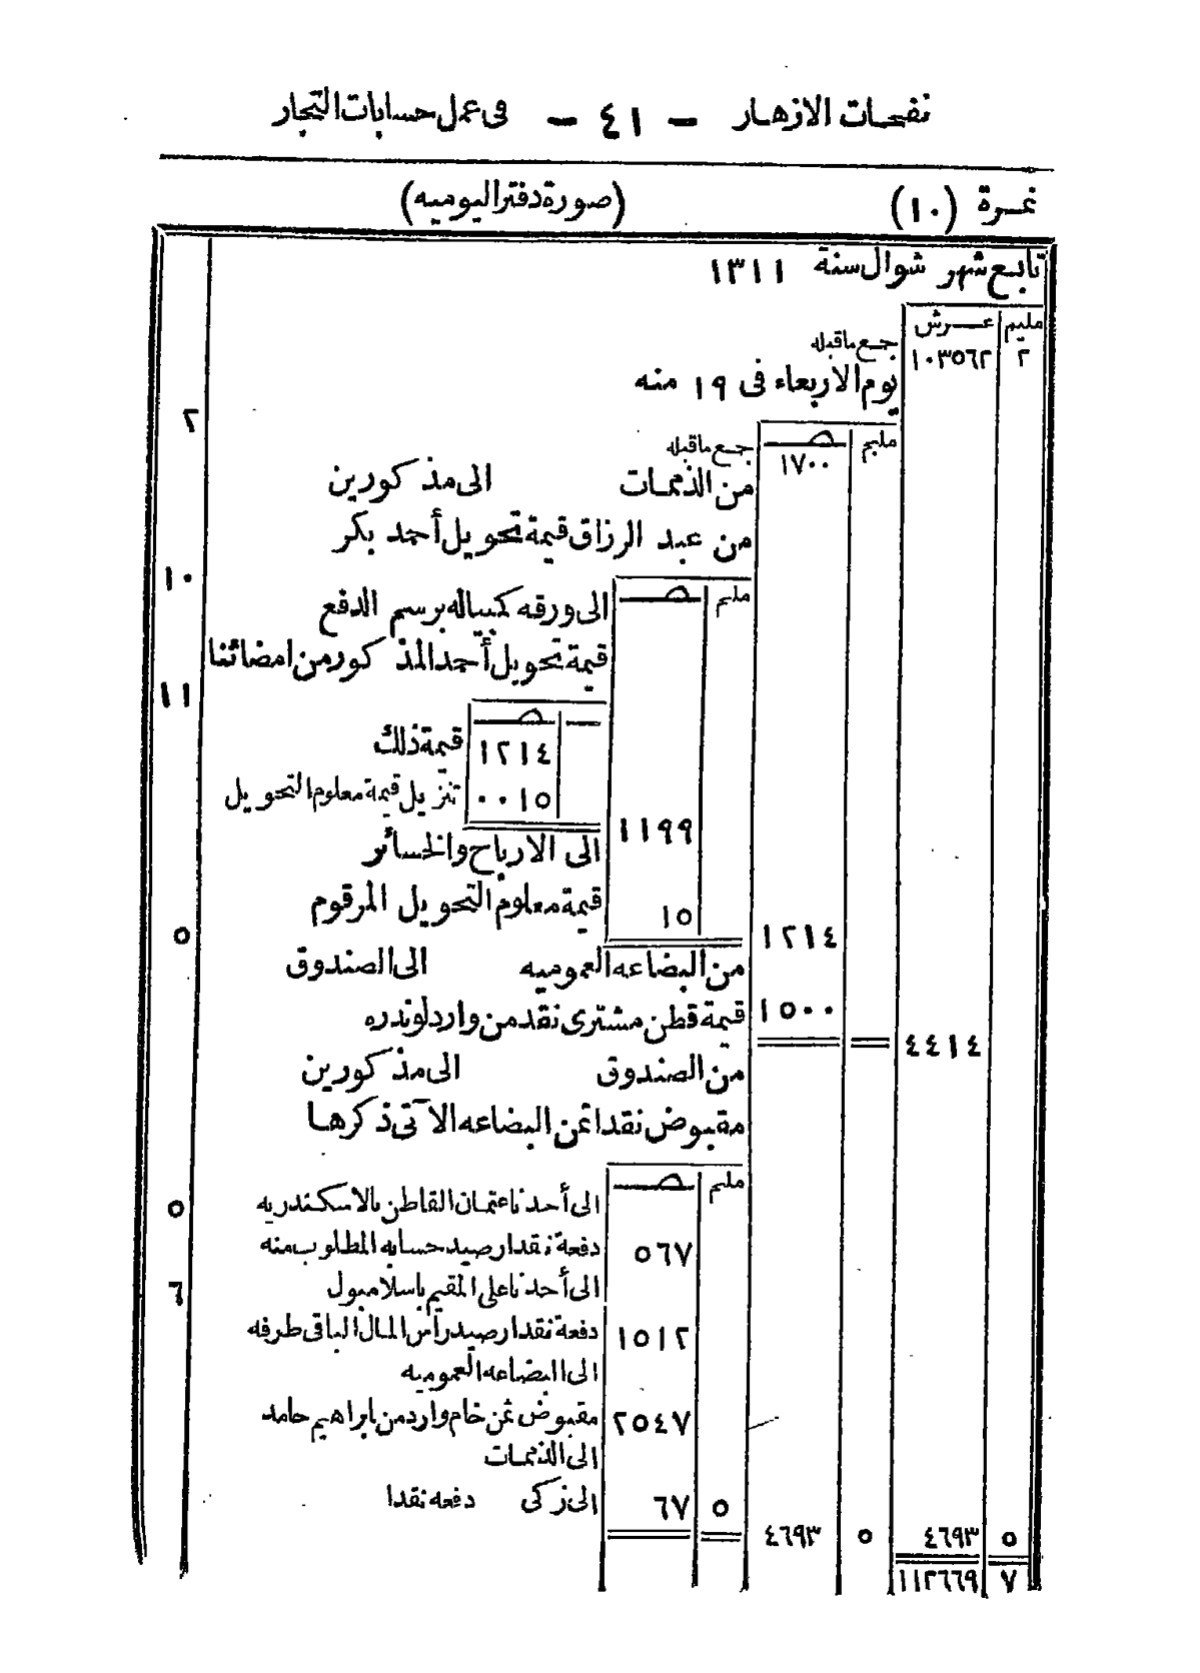 نفحات الازهار — ٤١ — فى عمل حسابات التجار
نمرة (١٠) (صورة دفتر اليوميه)
تابع شهر شوال سنة ١٣١١
مليم غرش
٢ ١٠٣٥٦٢ جمع ماقبله
يوم الاربعاء فى ١٩ منه
٢
مليم
١٧٠٠ جمع ماقبله
من الذممات الى مذكورين
من عبد الرزاق قيمة تحويل أحمد بكر
١٠
مليم
الى ورقه كمبياله برسم الدفع
قيمة تحويل أحمد المذكور من امضائنا
١١
١٢١٤ قيمة ذلك
٠٠١٥ تنزيل قيمة معلوم التحويل
١١٩٩
الى الارباح والخسائر
١٥ قيمة معلوم التحويل المرقوم
١٢١٤ ٥
من البضاعه العموميه الى الصندوق
١٥٠٠ قيمة قطن مشترى نقد من وارد لوندره
٤٤١٤
من الصندوق الى مذكورين
مقبوض نقدا ثمن البضاعه الآتى ذكرها
مليم
الى أحدنا عثمان القاطن بالاسكندريه ٥
٥٦٧ دفعة نقدا رصيد حسابه المطلوب منه
الى أحدنا على المقيم باسلامبول ٦
١٥١٢ دفعة نقدا رصيد رأس المال الباقى طرفه
الى البضاعه العموميه
٢٥٤٧ مقبوض ثمن خام وارد من ابراهيم حامد
الى الذممات
٥ ٦٧ الى زكى دفعه نقدا
٥ ٤٦٩٣ ٥ ٤٦٩٣
٧ ١١٢٦٦٩